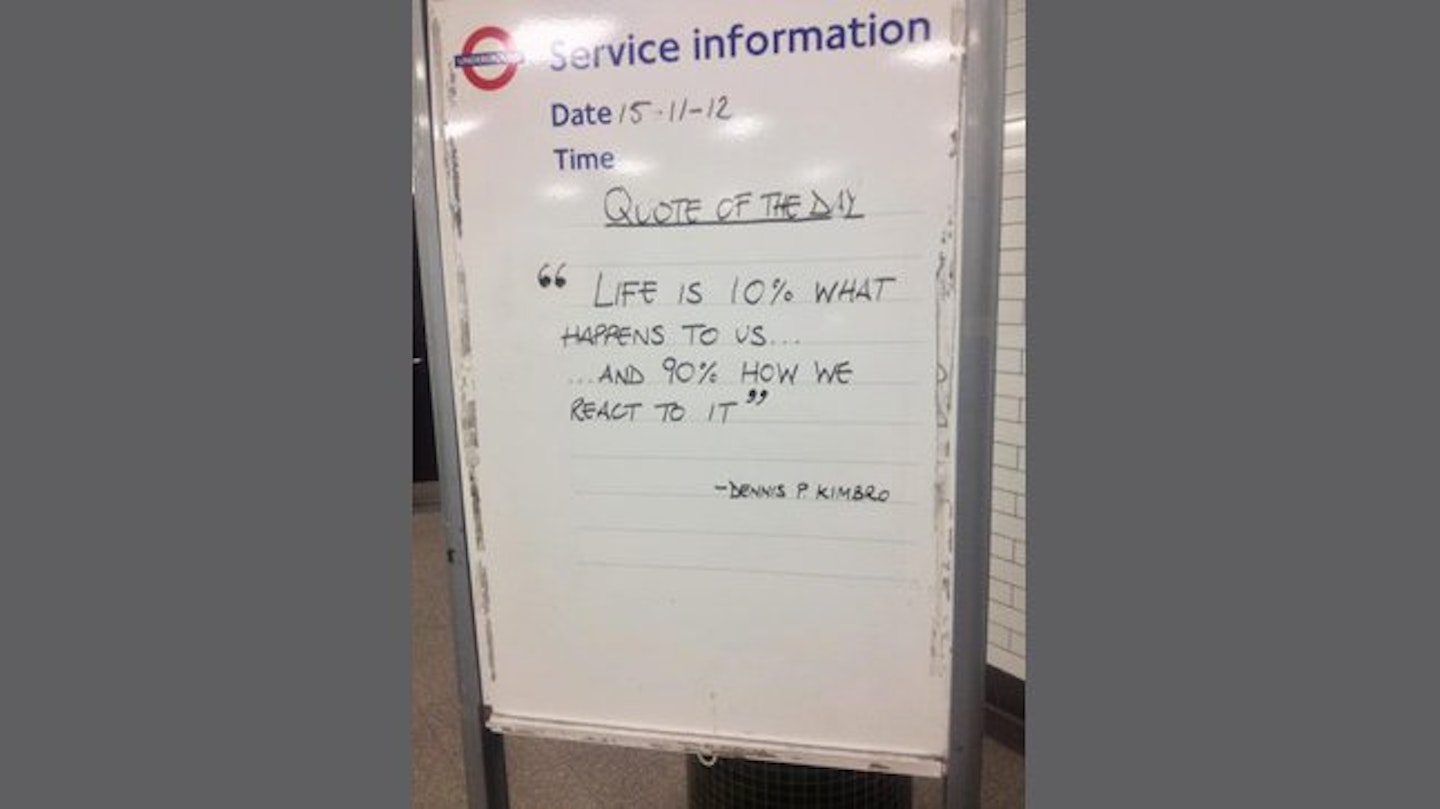 UNDERGROUND
Service information
Date 15-11-12
Time
QUOTE OF THE DAY
“ LIFE IS 10% WHAT
HAPPENS TO US...
...AND 90% HOW WE
REACT TO IT ”
-DENNIS P KIMBRO